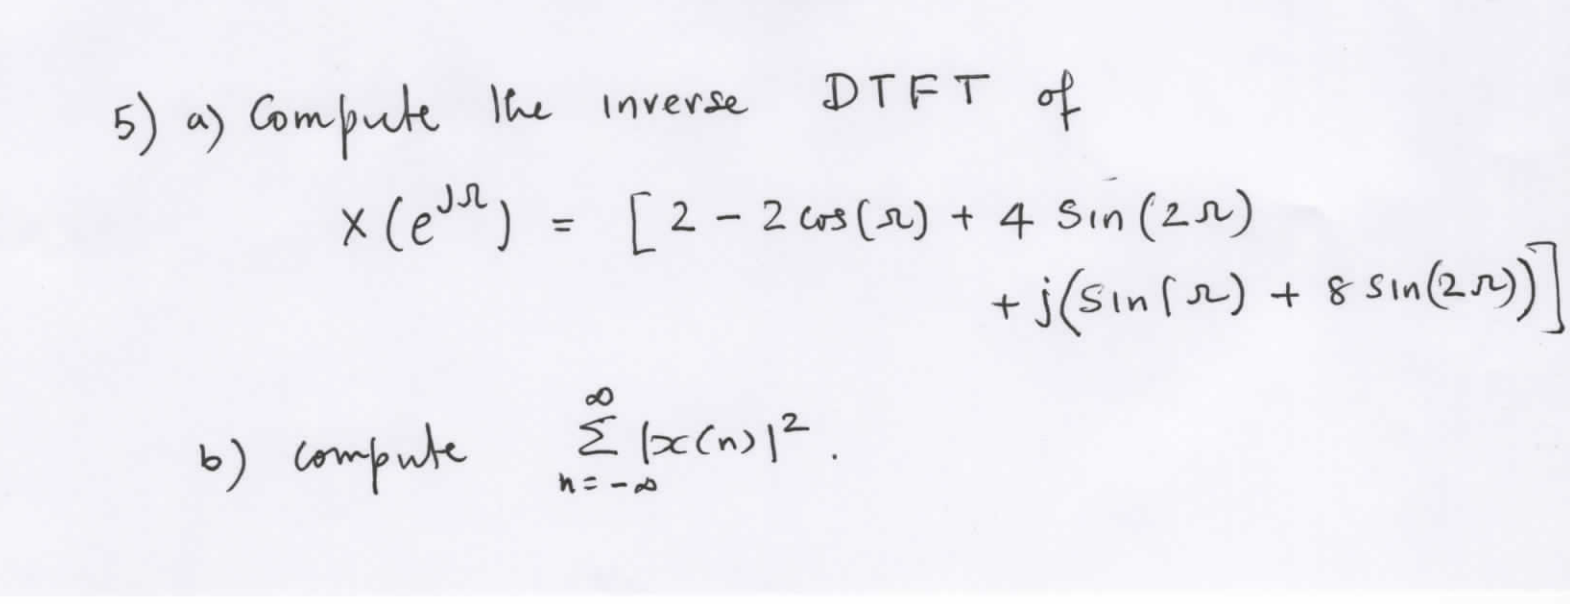 5) a) Compute the inverse DTFT of
X(e^{jΩ}) = [2 - 2 cos(Ω) + 4 Sin(2Ω)
+ j(Sin(Ω) + 8 Sin(2Ω))]
b) compute ∞Σn=-∞ |x(n)|^2.